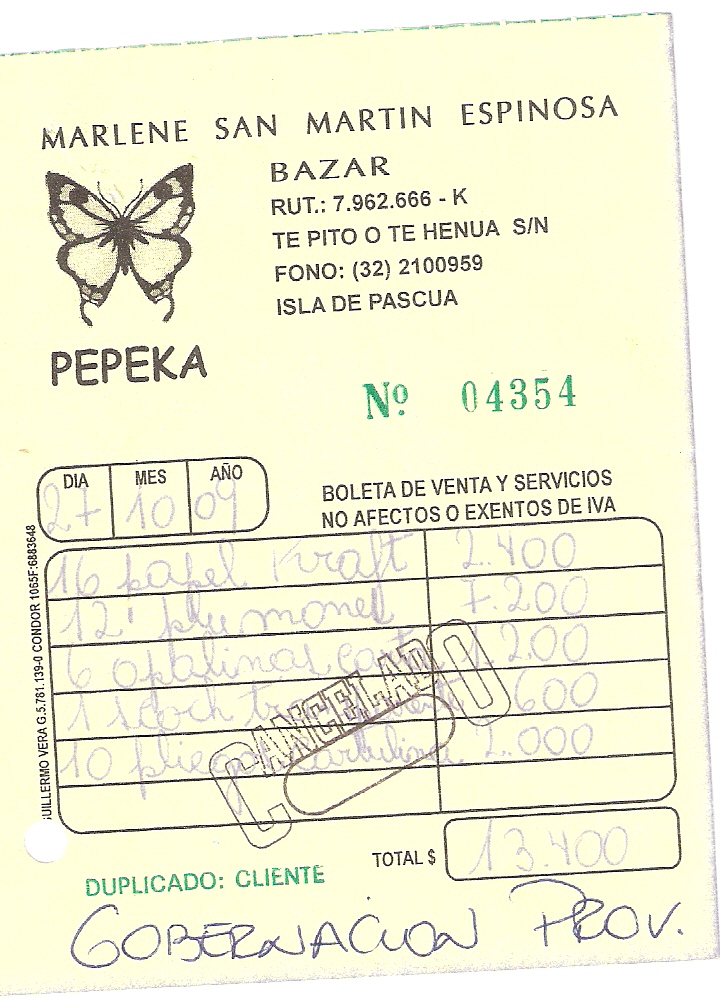 MARLENE SAN MARTIN ESPINOSA
BAZAR
RUT.: 7.962.666 - K
TE PITO O TE HENUA S/N
FONO: (32) 2100959
ISLA DE PASCUA
PEPEKA
Nº 04354
DIA MES AÑO
27 10 09
BOLETA DE VENTA Y SERVICIOS
NO AFECTOS O EXENTOS DE IVA
16 papel Kraft 2.400
12 plumones 7.200
6 opalinas 1.200
1 scoch 600
10 pliegos cartulina 2.000
CANCELADO
TOTAL $ 13.400
DUPLICADO: CLIENTE
GOBERNACION PROV.
GUILLERMO VERA G.5.761.139-0 CONDOR 1065F:6883648